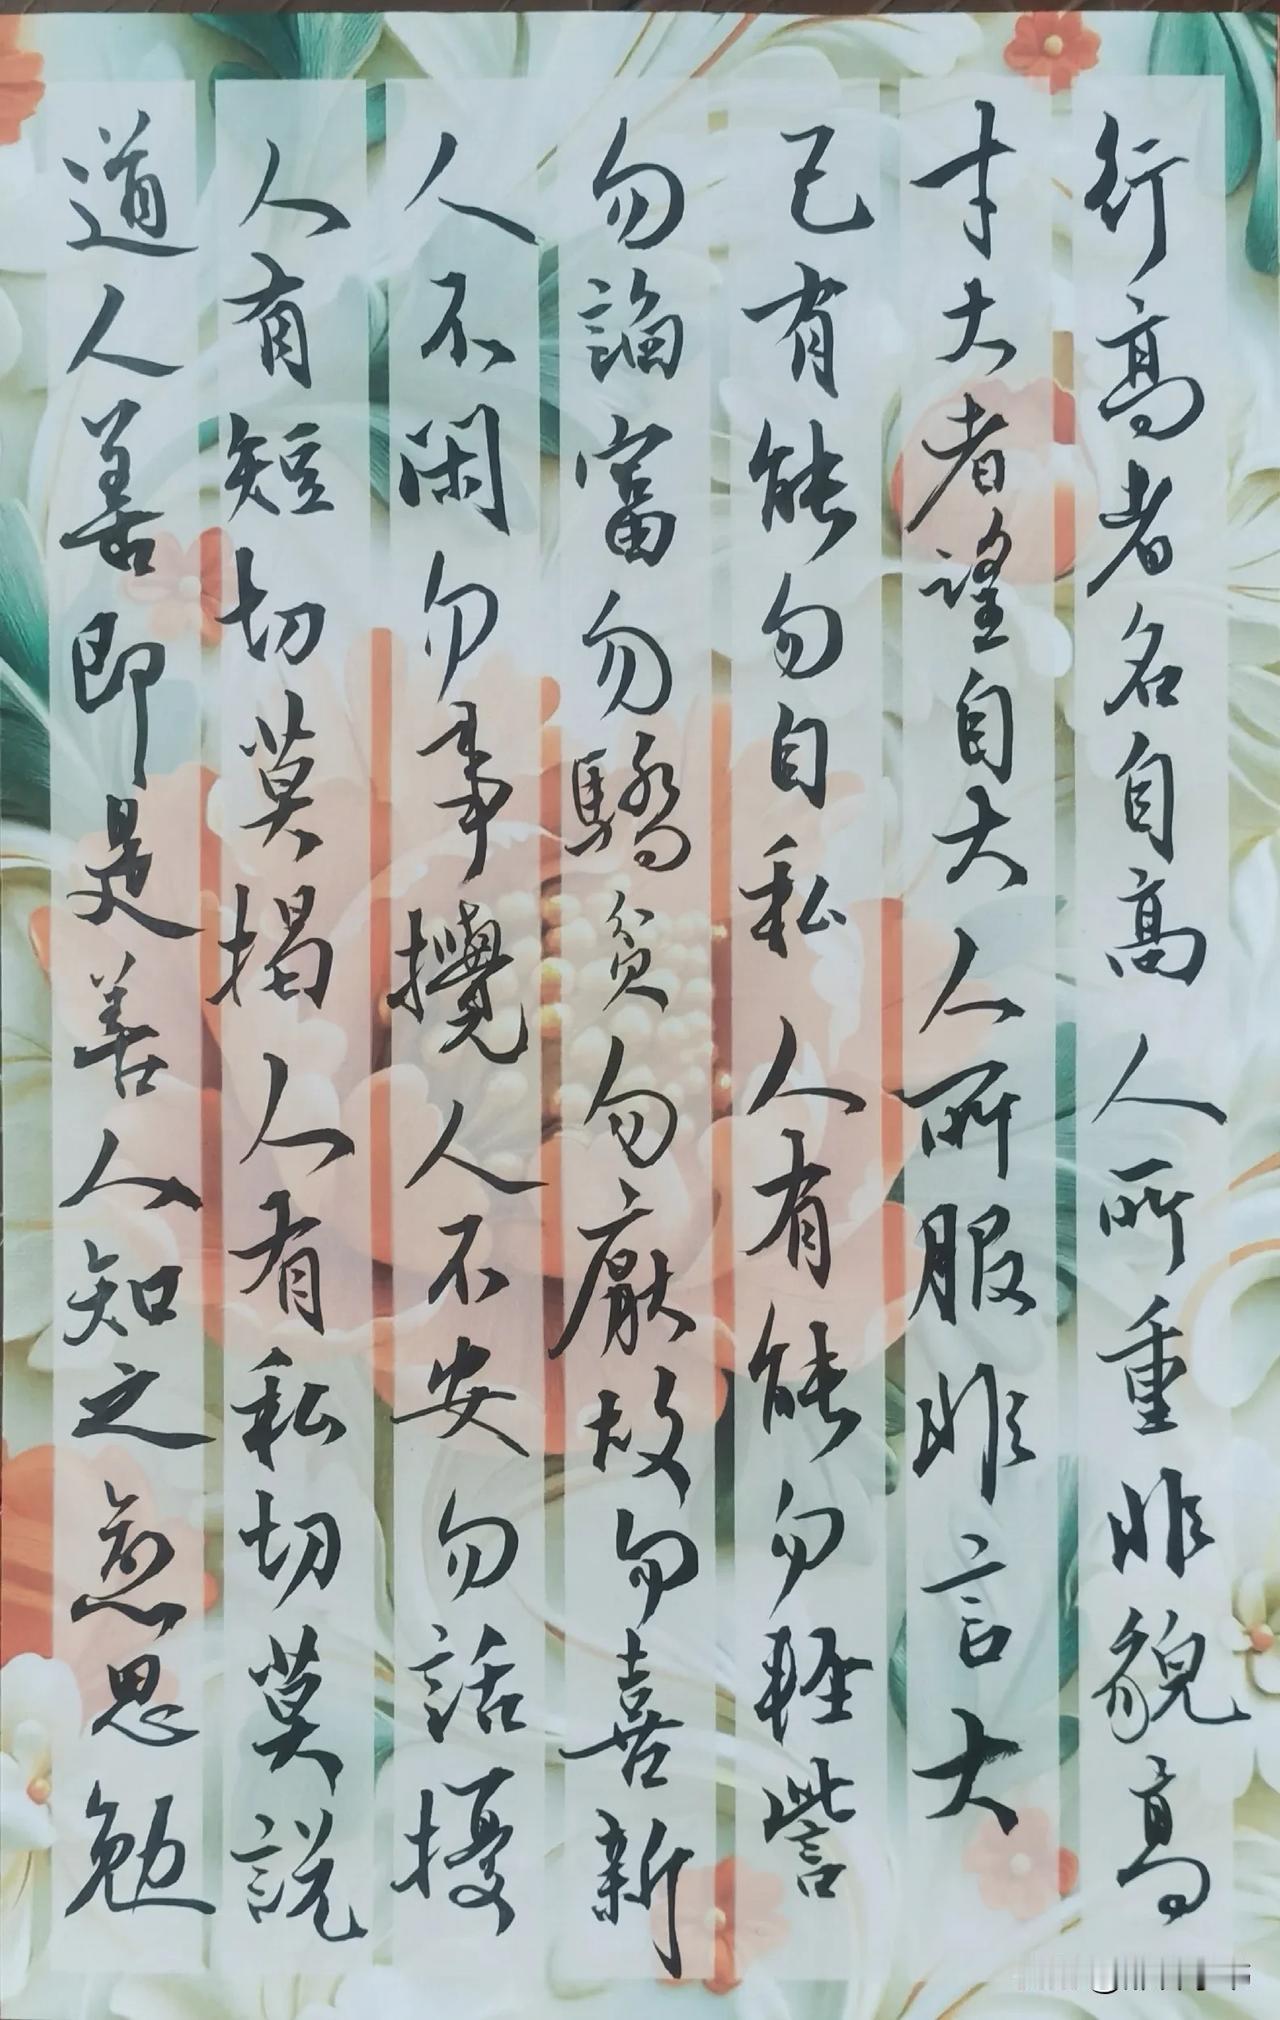 行高者名自高人所重非貌高
才大者望自大人所服非言大
已有能勿自私人有能勿軽訾
勿諂富勿驕貧勿厭故勿喜新
人不閑勿事攪人不安勿話擾
人有短切莫揭人有私切莫説
道人善即是善人知之愈思勉